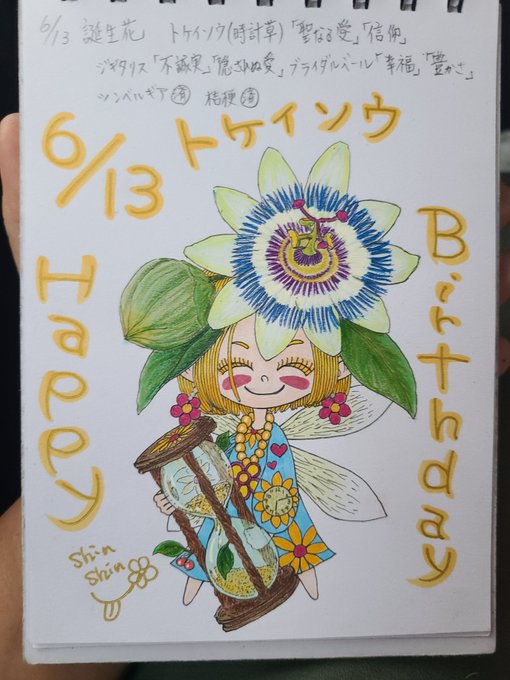 6/13 誕生花 トケイソウ(時計草)「聖なる愛」「信仰」
ジギタリス「不誠実」「隠されぬ愛」ブライダルベール「幸福」「豊かさ」
ツンベルギア㊮ 桔梗㊮
6/13 トケイソウ
Happy
Birthday
Shin
Shin